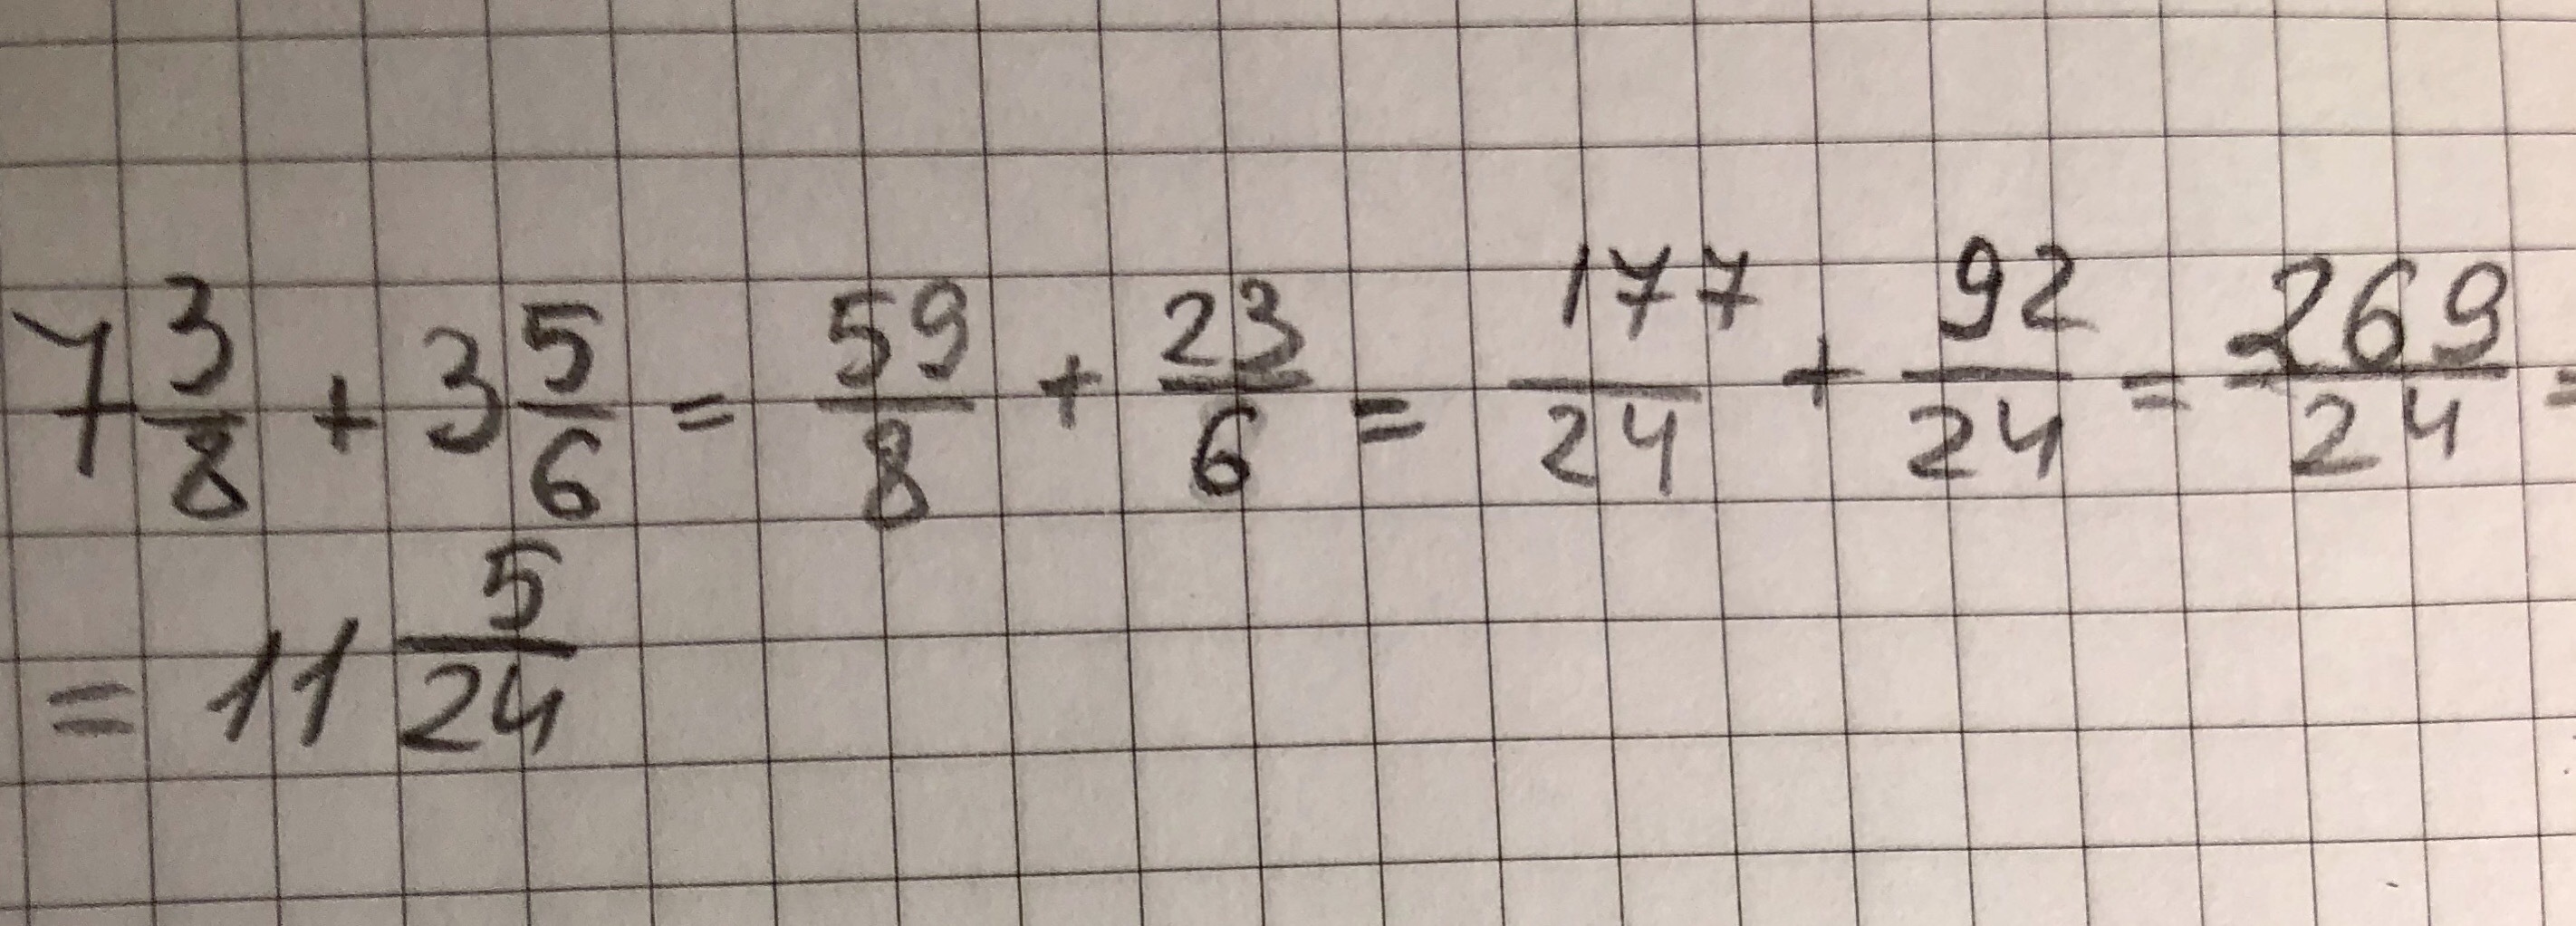 7 3/8 + 3 5/6 = 59/8 + 23/6 = 177/24 + 92/24 = 269/24 =
= 11 5/24